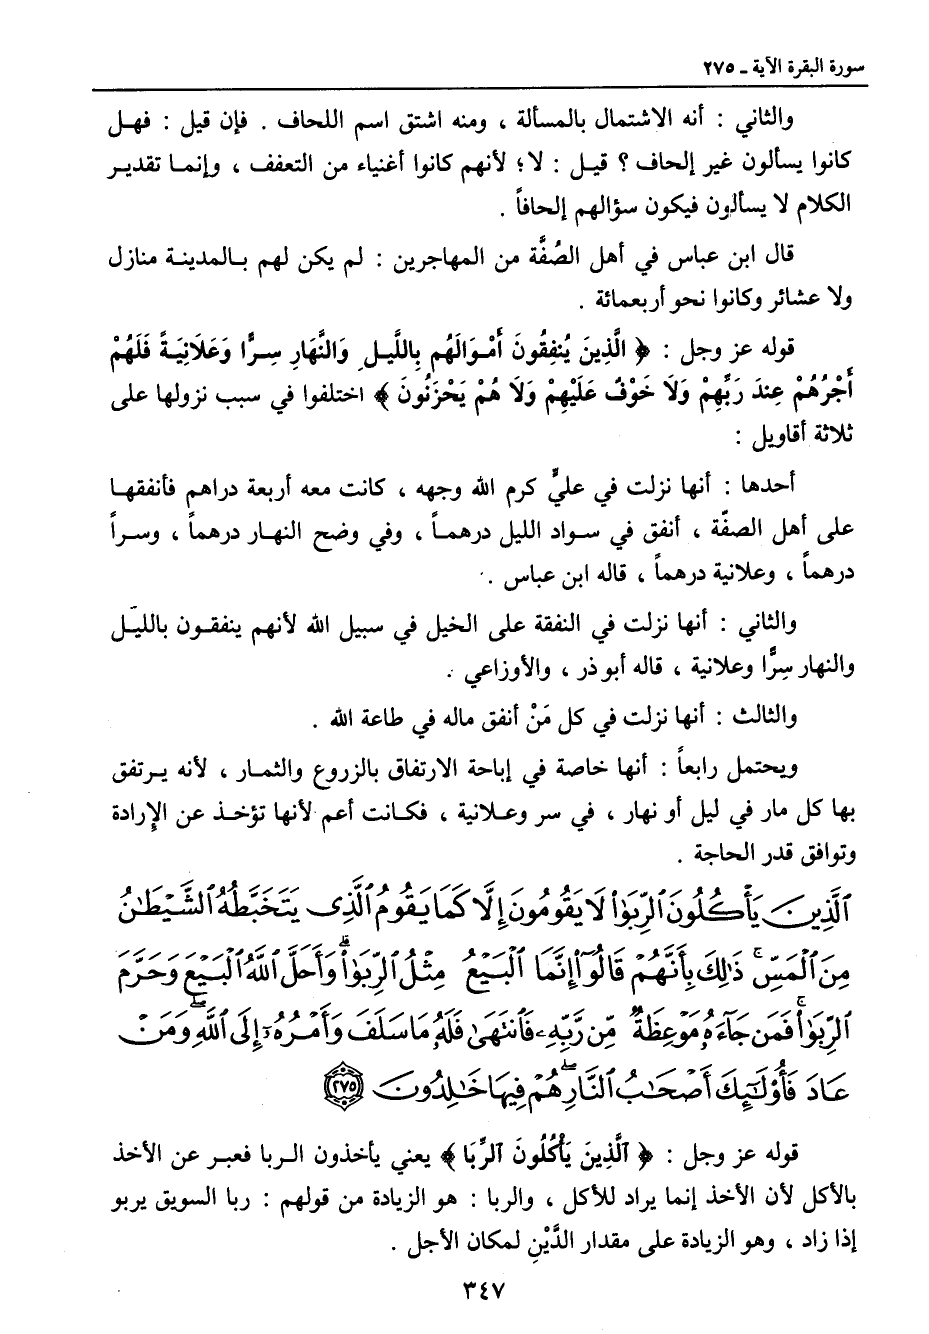 سورة البقرة الآية ـ ٢٧٥
والثاني : أنه الاشتمال بالمسألة ، ومنه اشتق اسم اللحاف . فإن قيل : فهل
كانوا يسألون غير إلحاف ؟ قيل : لا؛ لأنهم كانوا أغنياء من التعفف ، وإنما تقدير
الكلام لا يسألون فيكون سؤالهم إلحافاً .
قال ابن عباس في أهل الصُفَّة من المهاجرين : لم يكن لهم بالمدينة منازل
ولا عشائر وكانوا نحو أربعمائة .
قوله عز وجل : ﴿ الَّذِينَ يُنْفِقُونَ أَمْوَالَهُم بِاللَّيلِ وَالنَّهَارِ سِرًّا وَعَلَانِيَةً فَلَهُمْ
أَجْرُهُمْ عِندَ رَبِّهِمْ وَلَا خَوْفٌ عَلَيْهِمْ وَلَا هُمْ يَحْزَنُونَ ﴾ اختلفوا في سبب نزولها على
ثلاثة أقاويل :
أحدها : أنها نزلت في عليٍّ كرم الله وجهه ، كانت معه أربعة دراهم فأنفقها
على أهل الصفّة ، أنفق في سواد الليل درهماً ، وفي وضح النهار درهماً ، وسراً
درهماً ، وعلانية درهماً ، قاله ابن عباس .
والثاني : أنها نزلت في النفقة على الخيل في سبيل الله لأنهم ينفقون بالليّل
والنهار سِرًّا وعلانية ، قاله أبو ذر ، والأوزاعي .
والثالث : أنها نزلت في كل مَنْ أنفق ماله في طاعة الله .
ويحتمل رابعاً : أنها خاصة في إباحة الارتفاق بالزروع والثمار ، لأنه يرتفق
بها كل مار في ليل أو نهار ، في سر وعلانية ، فكانت أعم لأنها تؤخذ عن الإرادة
وتوافق قدر الحاجة .
ٱلَّذِينَ يَأۡكُلُونَ ٱلرِّبَوٰاْ لَا يَقُومُونَ إِلَّا كَمَا يَقُومُ ٱلَّذِي يَتَخَبَّطُهُ ٱلشَّيۡطَٰنُ
مِنَ ٱلۡمَسِّۚ ذَٰلِكَ بِأَنَّهُمۡ قَالُوٓاْ إِنَّمَا ٱلۡبَيۡعُ مِثۡلُ ٱلرِّبَوٰاْۗ وَأَحَلَّ ٱللَّهُ ٱلۡبَيۡعَ وَحَرَّمَ
ٱلرِّبَوٰاْۚ فَمَن جَآءَهُۥ مَوۡعِظَةٞ مِّن رَّبِّهِۦ فَٱنتَهَىٰ فَلَهُۥ مَا سَلَفَ وَأَمۡرُهُۥٓ إِلَى ٱللَّهِۖ وَمَنۡ
عَادَ فَأُوْلَٰٓئِكَ أَصۡحَٰبُ ٱلنَّارِۖ هُمۡ فِيهَا خَٰلِدُونَ ٢٧٥
قوله عز وجل : ﴿ ٱلَّذِينَ يَأْكُلُونَ ٱلرِّبَا ﴾ يعني يأخذون الربا فعبر عن الأخذ
بالأكل لأن الأخذ إنما يراد للأكل ، والربا : هو الزيادة من قولهم : ربا السويق يربو
إذا زاد ، وهو الزيادة على مقدار الدَّيْنِ لمكان الأجل .
٣٤٧